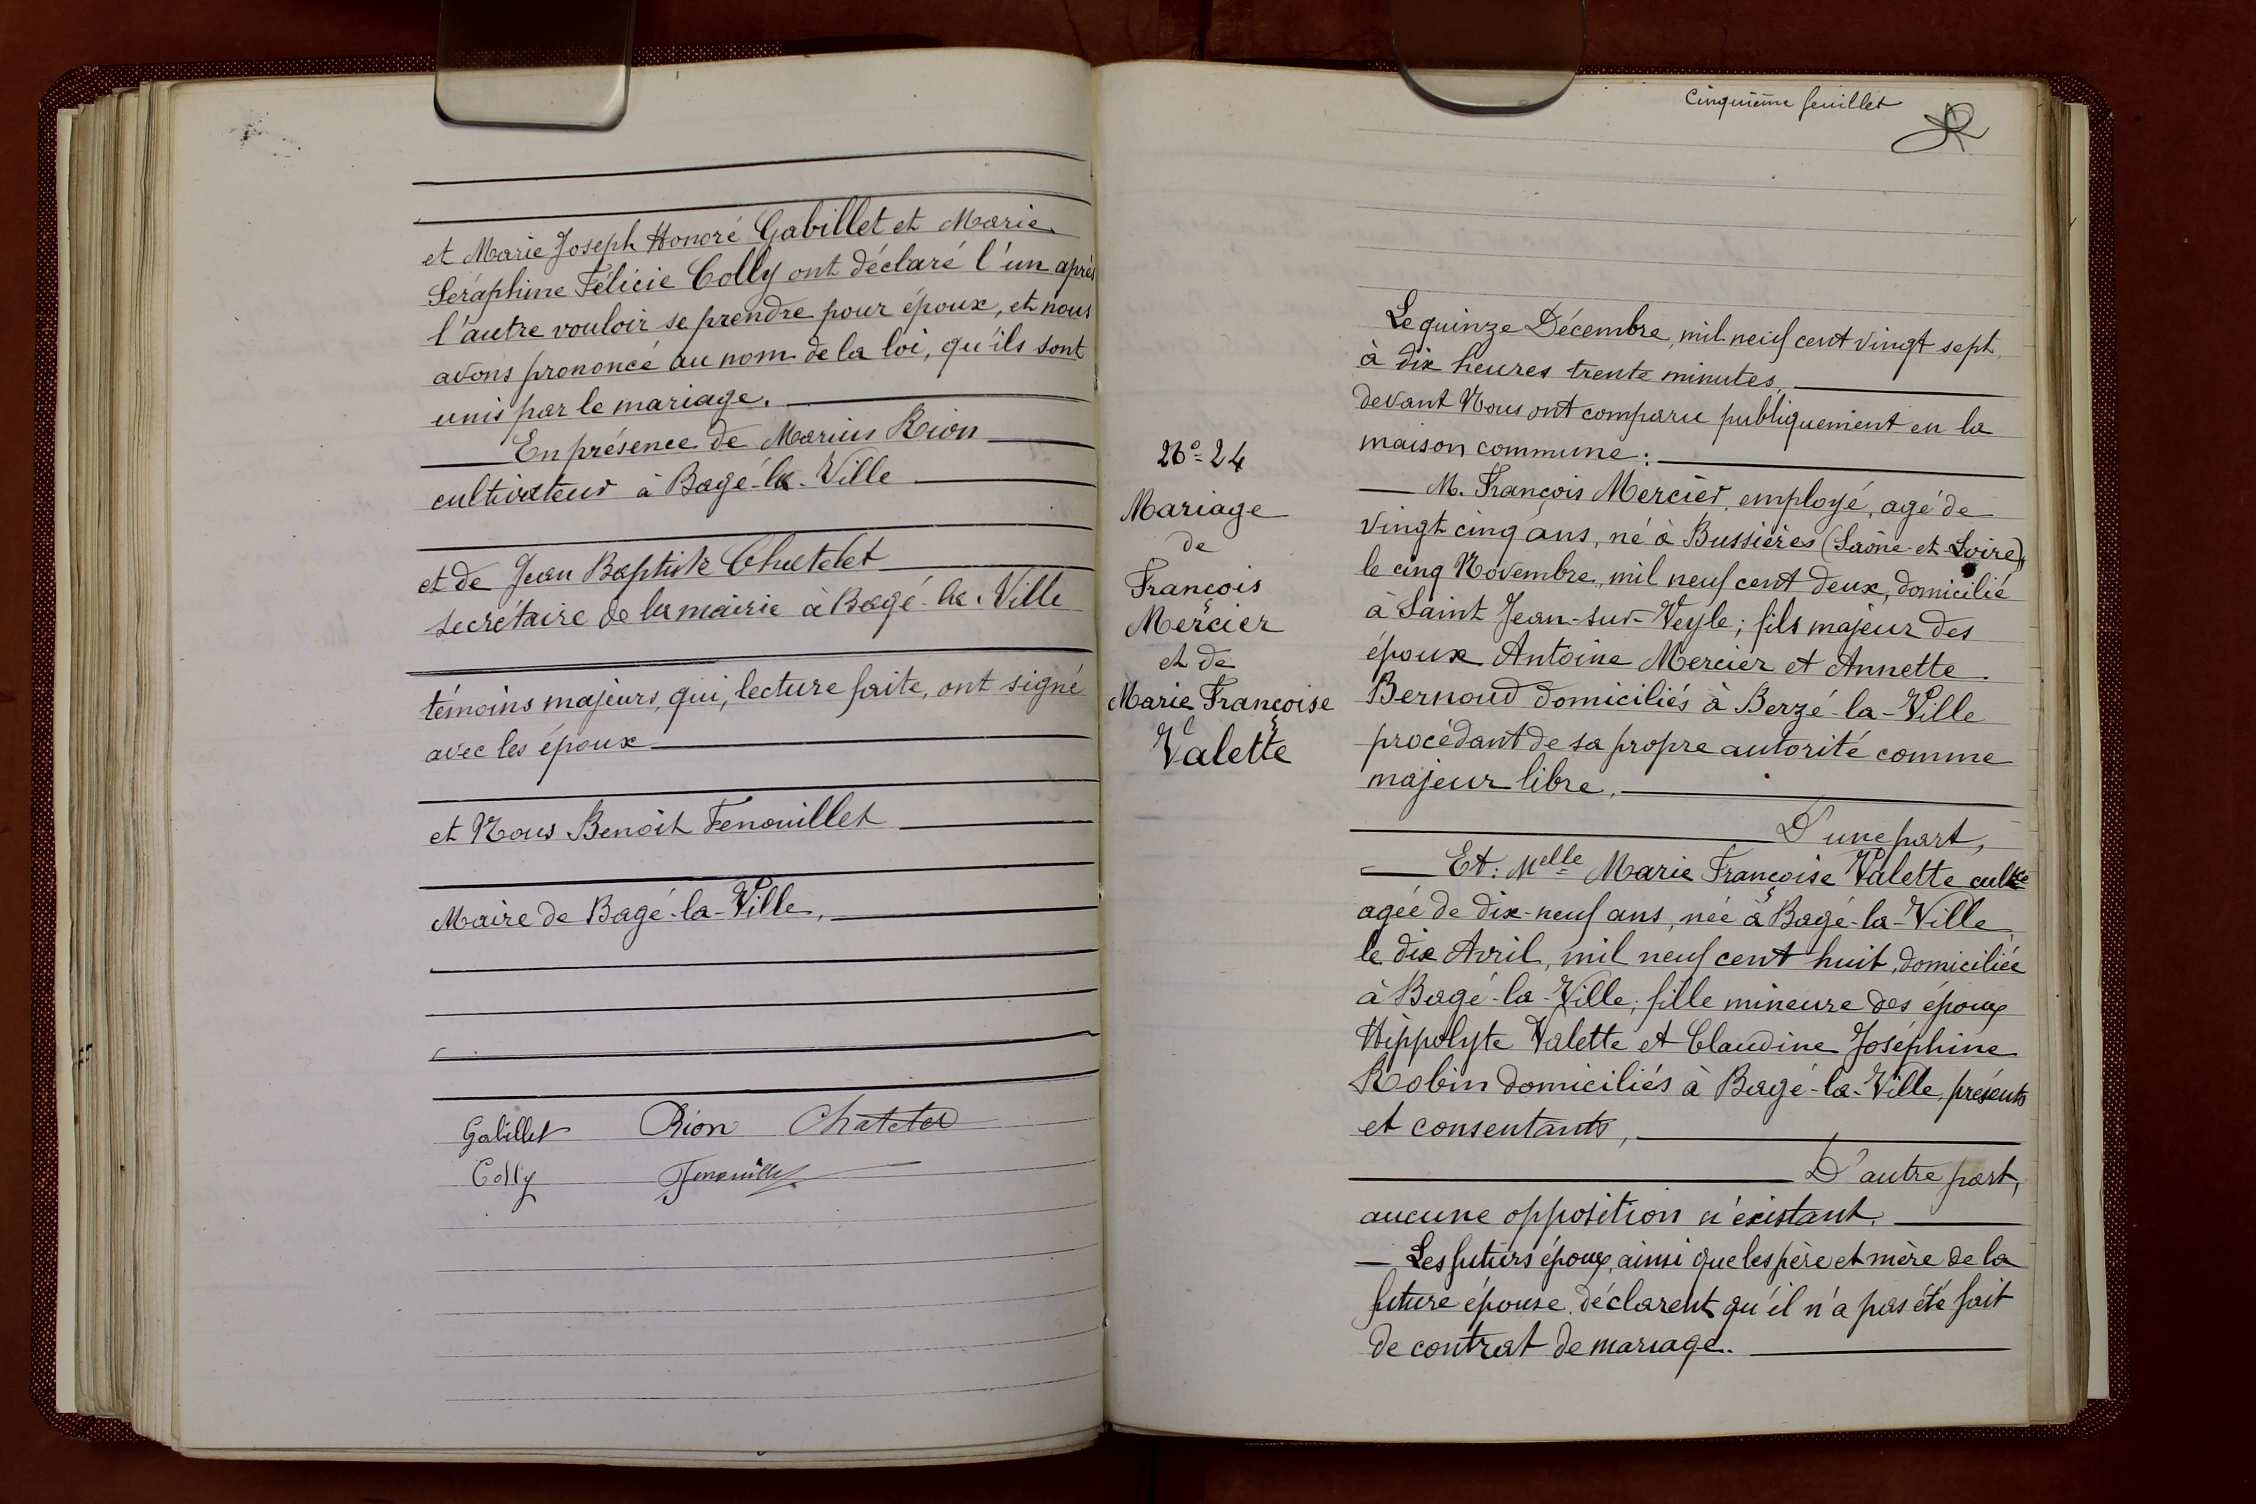 et Marie Joseph Honoré Gabillet et Marie
Séraphine Félicie Colly ont déclaré l'un après
l'autre vouloir se prendre pour époux, et nous
avons prononcé au nom de la loi, qu'ils sont
unis par le mariage.
En présence de Marius Rion
cultivateur à Bagé-la-Ville
et de Jean Baptiste Chatelet
secrétaire de la mairie à Bagé-la-Ville
témoins majeurs, qui, lecture faite, ont signé
avec les époux
et Nous Benoit Fenouillet
Maire de Bagé-la-Ville,
Gabillet Rion Chatelet
Colly Fenouillet
Cinquième feuillet
No 24
Mariage
de
François
Mercier
et de
Marie Françoise
Valette
Le quinze Décembre, mil neuf cent vingt sept,
à dix heures trente minutes,
devant Nous ont comparu publiquement en la
maison commune :
M. François Mercier, employé, agé de
vingt cinq ans, né à Bussières (Saône-et-Loire),
le cinq Novembre, mil neuf cent deux, domicilié
à Saint Jean-sur-Veyle ; fils majeur des
époux Antoine Mercier et Annette
Bernoud domiciliés à Berzé-la-Ville
procédant de sa propre autorité comme
majeur libre,
D'une part,
Et : Melle Marie Françoise Valette cultce
agée de dix-neuf ans, née à Bagé-la-Ville,
le dix Avril, mil neuf cent huit, domiciliée
à Bagé-la-Ville ; fille mineure des époux
Hippolyte Valette et Claudine Joséphine
Robin domiciliés à Bagé-la-Ville, présents
et consentants,
D'autre part,
aucune opposition n'éxistant.
Les futurs époux, ainsi que les père et mère de la
future épouse, déclarent qu'il n'a pas été fait
de contrat de mariage.